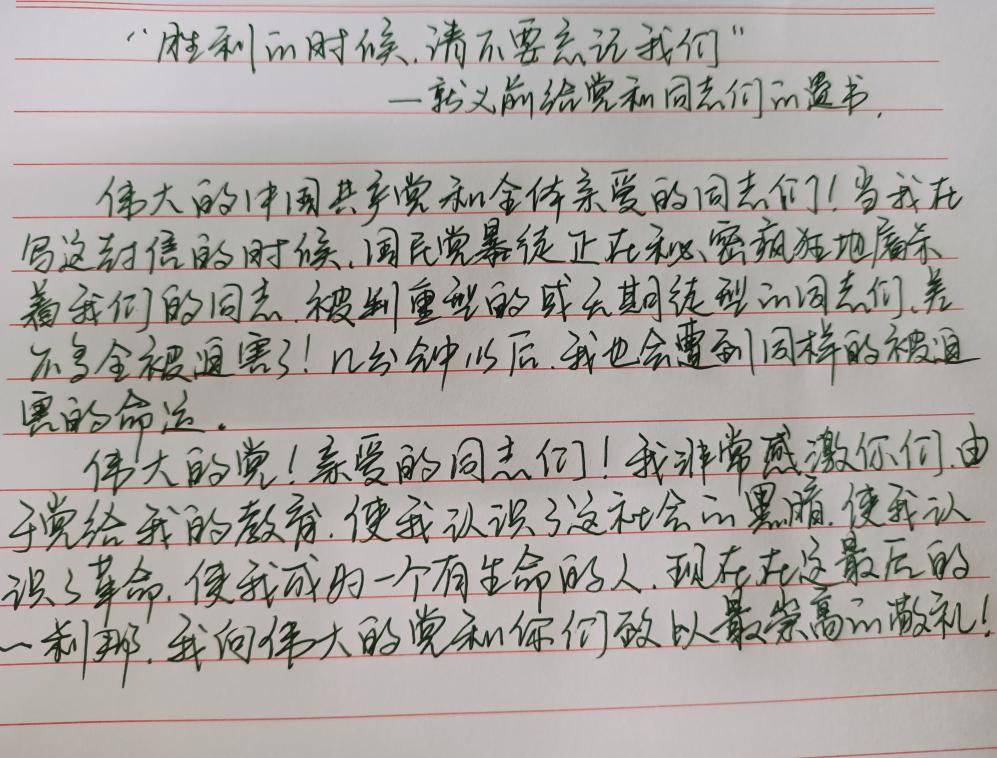 “胜利的时候,请不要忘记我们”
—就义前给党和同志们的遗书.
伟大的中国共产党和全体亲爱的同志们!当我在
写这封信的时候,国民党暴徒正在秘密疯狂地屠杀
着我们的同志,被判重型的或无期徒型的同志们,差
不多全被迫害了!几分钟以后,我也会遭到同样的被迫
害的命运。
伟大的党!亲爱的同志们!我非常感激你们,由
于党给我的教育,使我认识了这社会的黑暗,使我认
识了革命,使我成为一个有生命的人,现在在这最后的
一刹那,我向伟大的党和你们致以最崇高的敬礼!